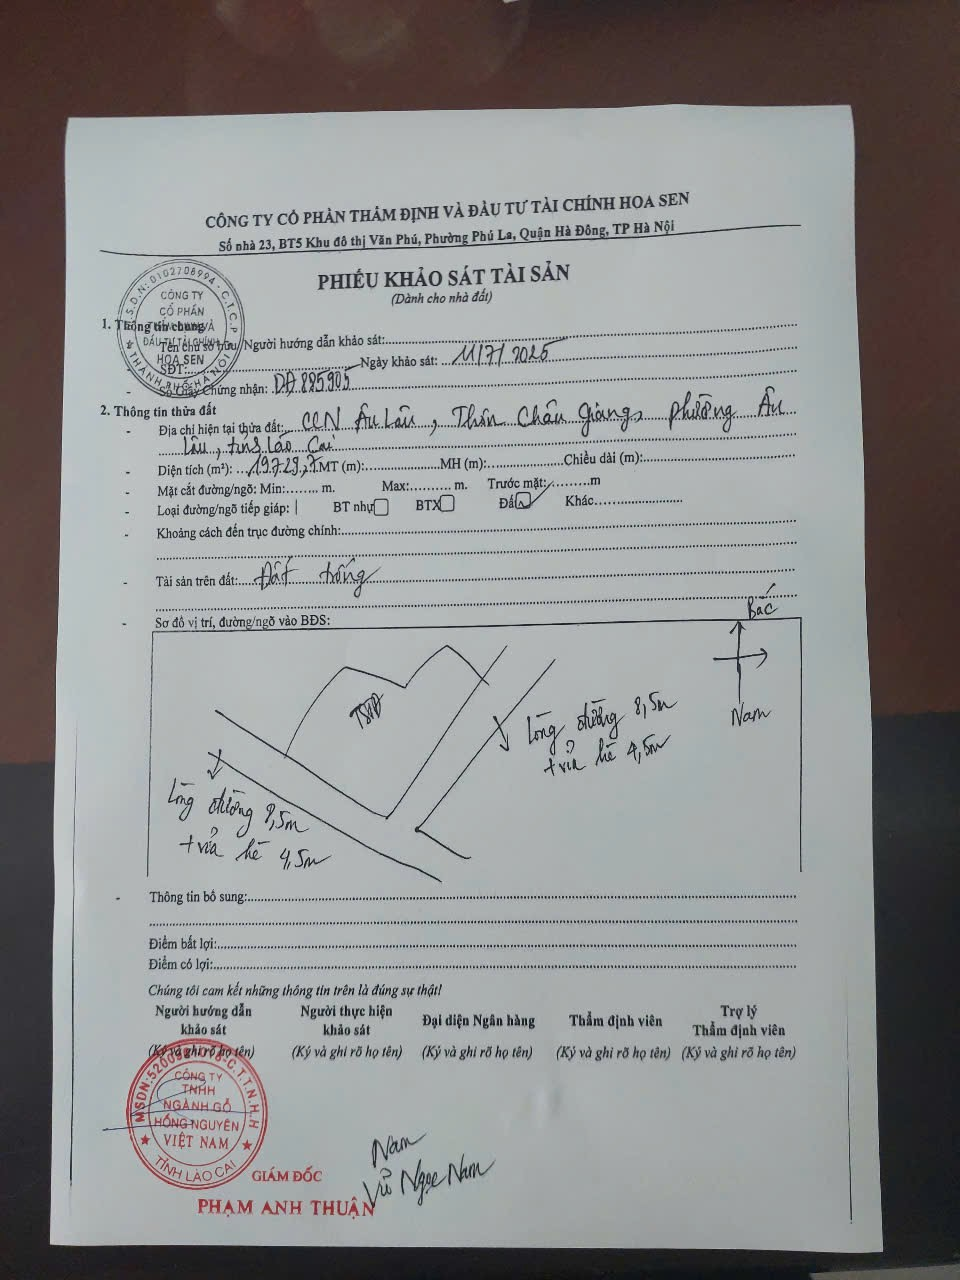 CÔNG TY CỔ PHẦN THẨM ĐỊNH VÀ ĐẦU TƯ TÀI CHÍNH HOA SEN
Số nhà 23, BT5 Khu đô thị Văn Phú, Phường Phú La, Quận Hà Đông, TP Hà Nội
PHIẾU KHẢO SÁT TÀI SẢN
(Dành cho nhà đất)
M.S.D.N: 0102706994 - C.T.C.P
CÔNG TY
CỔ PHẦN
THẨM ĐỊNH VÀ
ĐẦU TƯ TÀI CHÍNH
HOA SEN
THÀNH PHỐ HÀ NỘI
1. Thông tin chung
- Tên chủ sở hữu/Người hướng dẫn khảo sát:
- SĐT: Ngày khảo sát: 11/7/2025
- Số Giấy Chứng nhận: DA 885905
2. Thông tin thửa đất
- Địa chỉ hiện tại thửa đất: CCN Âu Lâu, Thôn Châu Giang, phường Âu
Lâu, tỉnh Lào Cai
- Diện tích (m²): 19729,7 MT (m): MH (m): Chiều dài (m):
- Mặt cắt đường/ngõ: Min: m. Max: m. Trước mặt: m
- Loại đường/ngõ tiếp giáp: BT nhự BTX Đấ Khác
- Khoảng cách đến trục đường chính:
- Tài sản trên đất: Đất trống
- Sơ đồ vị trí, đường/ngõ vào BĐS:
Bắc
Nam
TSTĐ
Lòng đường 8,5m
+ vỉa hè 4,5m
Lòng đường 8,5m
+ vỉa hè 4,5m
- Thông tin bổ sung:
Điểm bất lợi:
Điểm có lợi:
Chúng tôi cam kết những thông tin trên là đúng sự thật!
Người hướng dẫn khảo sát
(Ký và ghi rõ họ tên)
Người thực hiện khảo sát
(Ký và ghi rõ họ tên)
Đại diện Ngân hàng
(Ký và ghi rõ họ tên)
Thẩm định viên
(Ký và ghi rõ họ tên)
Trợ lý Thẩm định viên
(Ký và ghi rõ họ tên)
CÔNG TY
TNHH
NGÀNH GỖ
HỒNG NGUYÊN
VIỆT NAM
TỈNH LÀO CAI
GIÁM ĐỐC
PHẠM ANH THUẬN
Nam
Vũ Ngọc Nam